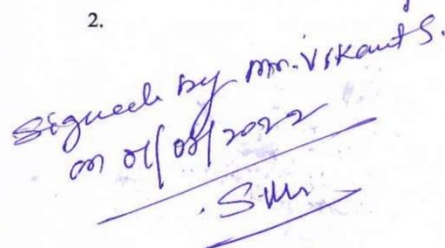 2.
Signed by Mr. Vikant S.
on 01/08/2022